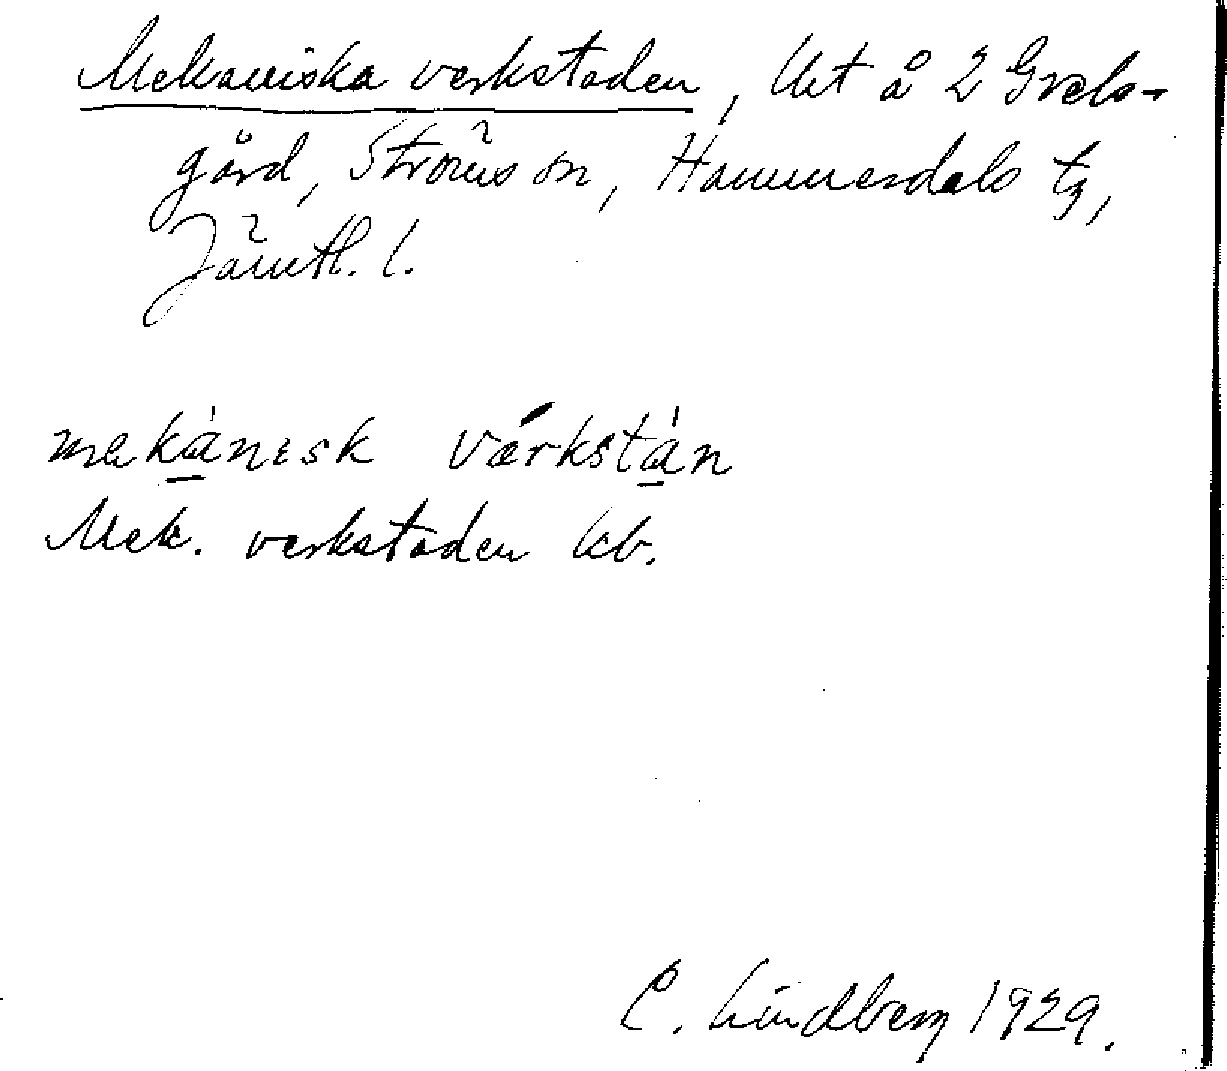 Mekaniska verkstaden, Uet å 2 Grels-
gård, Ströms sn, Hammerdals tg,
Jämtl. l.
mekànɪsk vǽrkstàn
Mek. verkstaden kb.
C. Lindberg 1929.